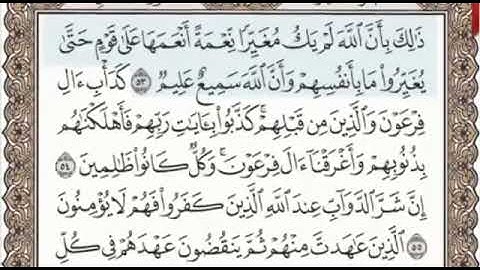 ذَٰلِكَ بِأَنَّ ٱللَّهَ لَمْ يَكُ مُغَيِّرًا نِّعْمَةً أَنْعَمَهَا عَلَىٰ قَوْمٍ حَتَّىٰ
يُغَيِّرُوا۟ مَا بِأَنفُسِهِمْ وَأَنَّ ٱللَّهَ سَمِيعٌ عَلِيمٌ ٥٣ كَدَأْبِ ءَالِ
فِرْعَوْنَ وَٱلَّذِينَ مِن قَبْلِهِمْ كَذَّبُوا۟ بِـَٔايَٰتِ رَبِّهِمْ فَأَهْلَكْنَٰهُم
بِذُنُوبِهِمْ وَأَغْرَقْنَآ ءَالَ فِرْعَوْنَ وَكُلٌّ كَانُوا۟ ظَٰلِمِينَ ٥٤
إِنَّ شَرَّ ٱلدَّوَآبِّ عِندَ ٱللَّهِ ٱلَّذِينَ كَفَرُوا۟ فَهُمْ لَا يُؤْمِنُونَ
٥٥ ٱلَّذِينَ عَٰهَدتَّ مِنْهُمْ ثُمَّ يَنقُضُونَ عَهْدَهُمْ فِى كُلِّ